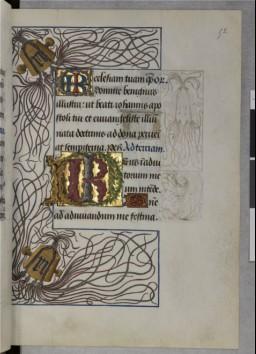 52
Ecclesiam tuam q̄s
domine benignus
illustra: ut beati iohannis apo
stoli tui et euuangeliste illu
minata doctrinis ad dona perueni
at sempiterna. per. Ad terciam.
Deus in adiu
torium meu
um intende.
Dñe
ad adiuuandum me festina.